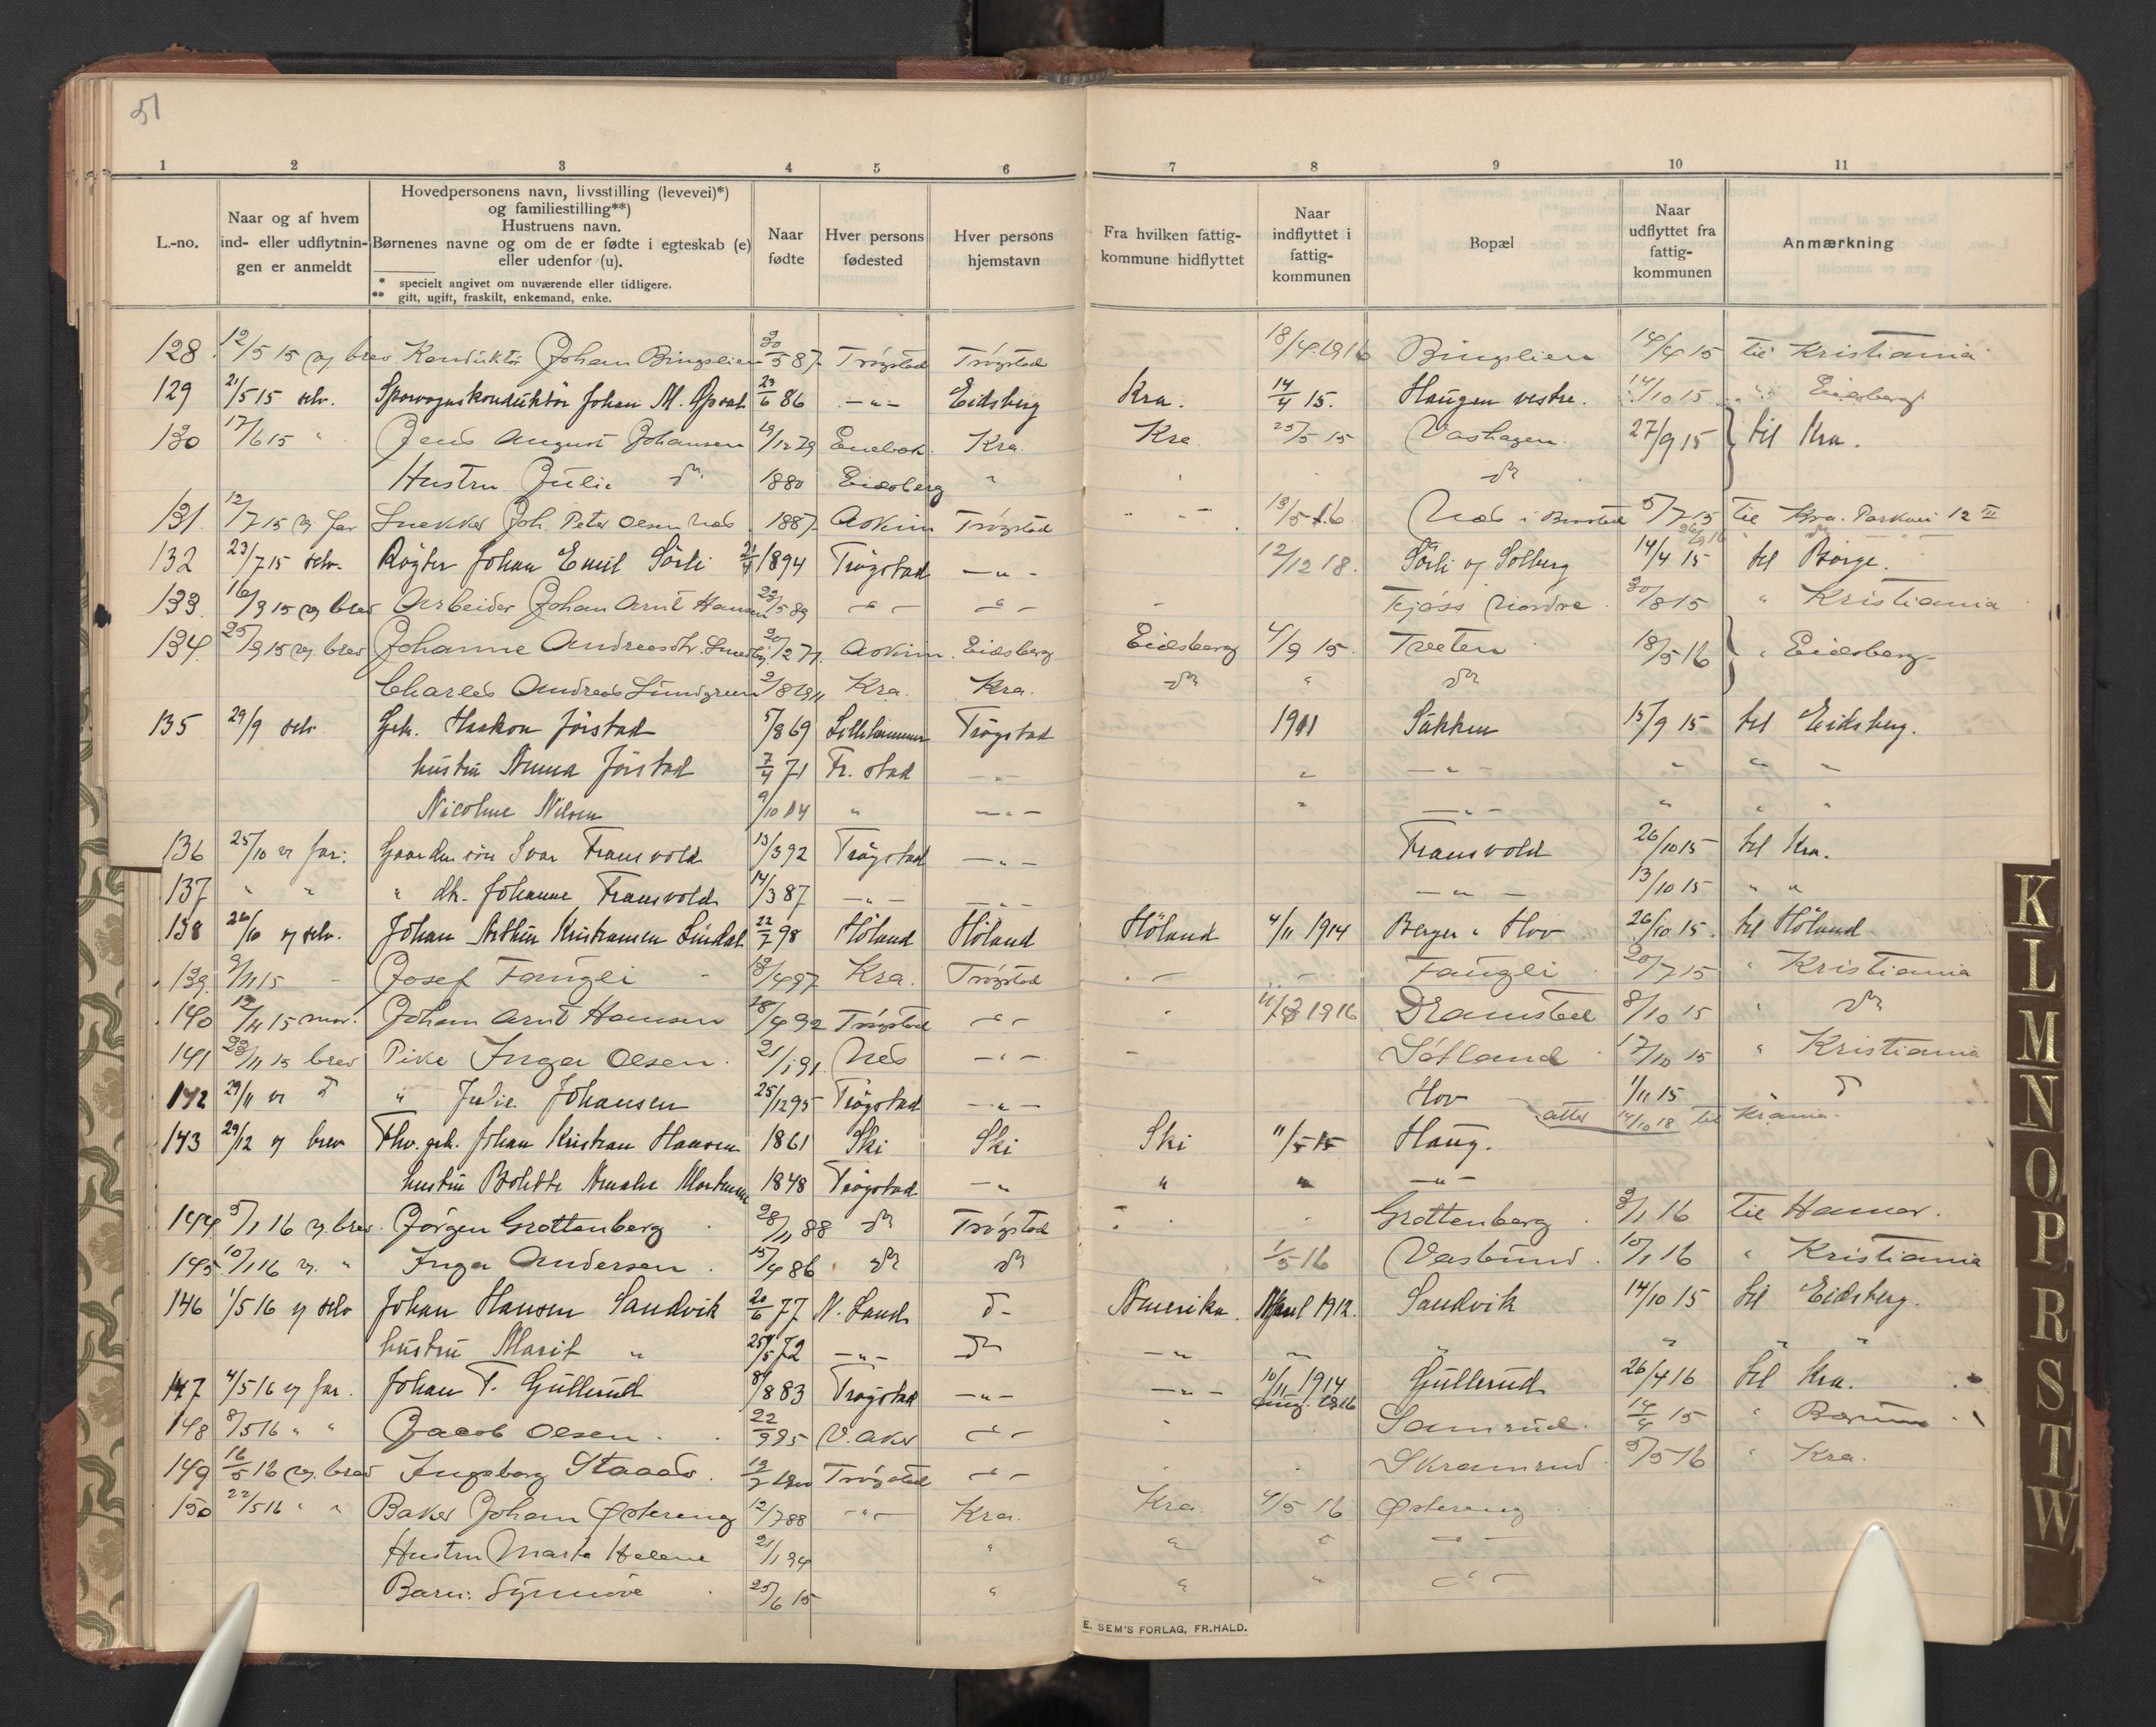 51
1 2 3 4 5 6 7 8 9 10 11
L.-no.
Naar og af hvem ind- eller udflytnin- gen er anmeldt
Hovedpersonens navn, livsstilling (levevei)*)
og familiestilling**)
Hustruens navn.
Børnenes navne og om de er fødte i egteskab (e)
eller udenfor (u).
* specielt angivet om nuværende eller tidligere.
** gift, ugift, fraskilt, enkemand, enke.
Naar fødte
Hver persons fødested
Hver persons hjemstavn
Fra hvilken fattig- kommune hidflyttet
Naar indflyttet i fattig- kommunen
Bopæl
Naar udflyttet fra fattig- kommunen
Anmærkning
128 12/5 15 og brev Konduktør Johan Bingslien 30/5 87 Trøgstad Trøgstad 18/4 1916 Bingslien 14/4 15 til Kristiania
129 21/5 15 selv. Sporvognskonduktør Johan M. 23/6 86 -"- Eidsberg Kra. 14/4 15. Haugen vestre. 14/10 15 " Eidsberg
130 17/6 15 " Jens August Johansen 19/12 79 Enebak Kra. Kra 25/5 15 Vashagen 27/9 15 til Kra.
Hustru Julie do 1880 Eidsberg " " " do
131 12/7 15 og far Snekker Joh. Peter Olsen Næs 1887 Askim Trøgstad 5/7 15 til Kra. Parkvei 12 III
132 23/7 15 selv. Røgter Johan Emil Sörli 21/4 1894 Trøgstad -"- 12/12 18. Sörli og Solberg 14/4 15 til Borge.
133. 16/9 15 og brev Arbeider Johan Arnt Hansen 23/5 89 -"- -"- - Kjøss Nordre 30/8 15 " Kristiania
134. 25/9 15 og brev Johanne Andreasdtr. 20/2 71. Askim Eidsberg Eidsberg 4/9 15. Treten 18/5 16 " Eidsberg
Charles Andreas Lundgreen 2/8 1911 Kra. Kra. do " do
135 29/9 selv Grh. Haakon Jörstad 5/8 69 Lillehammer Trøgstad 1911 Säkken 15/9 15 til Eidsberg.
hustru Anna Jörstad 7/4 71 Fr. stad -"- " -"- " " "
Nicoline Nilsen 9/10 04 " -"- " -"- " " "
136 25/10 v far: Gaardm. sön Ivar Fransvold 13/3 92 Trøgstad -"- Fransvold 26/10 15 til Kra.
137 " " " dtr. Johanne Fransvold 14/3 87 -"- -"- -"- 13/10 15 " "
138 26/10 v selv. Johan Arthur Kristiansen Lindal 22/7 98 Höland Höland Höland 4/11 1914 Berger i Hov 26/10 15. til Höland
139. 9/11 15 - Josef Fangli 13/4 97 Kra. Trøgstad Fangli 20/7 15 " Kristiania
140 12/11 15 mor. Johan Arnt Hansen 18/4 92 Trøgstad -"- 1916 Dramstad 8/10 15 " do
141 23/11 15 brev Pike Inga Olsen. 21/1 91 Næs -"- - Sötland 17/10 15 " Kristiania
142 29/11 v d " Julie Johansen 25/12 95 Trøgstad -"- Hov 1/11 15 d
atter 14/10 18 til Krania.
143 29/12 v brev Fhv. grh. Johan Kristian Hansen 1861 Ski Ski Ski 11/5 15 Haug.
hustru Bolette Amalie Mortensen 1848 Trøgstad -"- " " -"-
144. 5/1 16 og brev. Jørgen Grøttenberg 28/11 88 do Trøgstad Grøttenberg 3/1 16 til Hamar.
145. 10/1 16 v. " Inga Andersen. 15/4 86 do do 1/5 16 Vasbund. 10/1 16 " Kristiania
146 1/5 16 v selv Johan Hansen Sandvik 20/6 77 N. Land d- Amerika. April 1912. Sandvik 14/10 15 til Eidsberg.
hustru Marit " 25/5 72 -"- do -"- " " " " "
147 4/5 16 v far. Johan T. Gullerud 8/8 83 Trøgstad -"- -"- 10/11 1914 Gullerud 26/4 16 til Kra.
148 8/5 16 " " Jacob Olsen. 22/9 95 V. Aker -"- Aug. 1916 Samrud. 14/4 15 " Bærum
149 16/5 16 og brev Ingeborg Staaas. 1900 Trøgstad -"- Skramrud 5/5 16 " Kra.
150 22/5 16 " " Baker Johan Østereng 12/7 88 -"- Kra. Kra. 4/5 16 Østereng
Hustru Marta Helene 21/1 94 " " " -"-
Barn: Synnøve 25/6 15 " " " -"-
E. SEM'S FORLAG, FR.HALD.
K
L
M
N
O
P
R
S
T
W